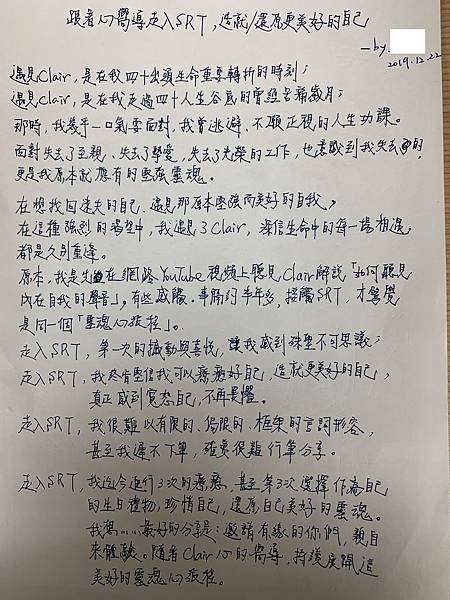 跟著心嚮導走入SRT，造就/還原更美好的自己
—by.
2019.12.22
遇見Clair，是在我四十出頭生命重要轉折的時刻；
遇見Clair，是在我走過四十人生谷底的曾經苦痛歲月；
那時，我幾乎一口氣要面對，我曾逃避、不願正視的人生功課。
面對失去了至親、失去了摯愛，失去了光榮的工作，也意識到我失去的，
更是我原本就應有的堅強靈魂。
在想找回迷失的自己、遇見那原本堅強而美好的自我，
在這種強烈的渴望中，我遇見了Clair，深信生命中的每一場相遇
都是久別重逢。
原本，我是先在網路YouTube視頻上聽見Clair解說「如何聽見
內在自我的聲音」，有些感觸。事隔約半年多，接觸SRT，才驚覺
是同一個「靈魂心旅程」。
走入SRT，第一次的撼動與喜悅，讓我感到殊聖不可思議；
走入SRT，我終有堅信我可以療癒好自己，造就更美好的自己，
真正感到寬恕自己，不再畏懼。
走入SRT，我很難以有限的、侷限的、框架的言詞形容，
甚至我遲不下筆，確實很難行筆分享。
走入SRT，我迄今進行3次的療癒，甚至第3次選擇作為自己
的生日禮物，珍惜自己，還原自己美好的靈魂。
我想……最好的分享是：邀請有緣的你們，親自
來體驗。隨著Clair心的嚮導，持續展開這
美好的靈魂心旅程。